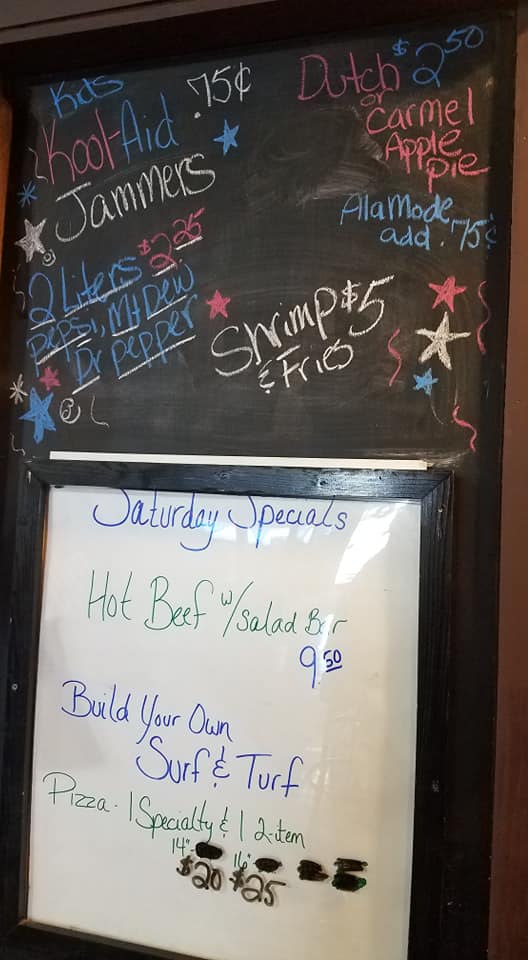 Kids
Kool-Aid .75¢
Jammers
2 Liters $2.25
Pepsi, Mt Dew
Dr pepper
Dutch $2.50
or
Carmel
Apple
pie
AlaMode
add .75¢
Shrimp $5
& Fries
Saturday Specials
Hot Beef w/salad Bar
9.50
Build Your Own
Surf & Turf
Pizza - 1 Specialty & 1 2-item
14"- 16"-
$20 $25